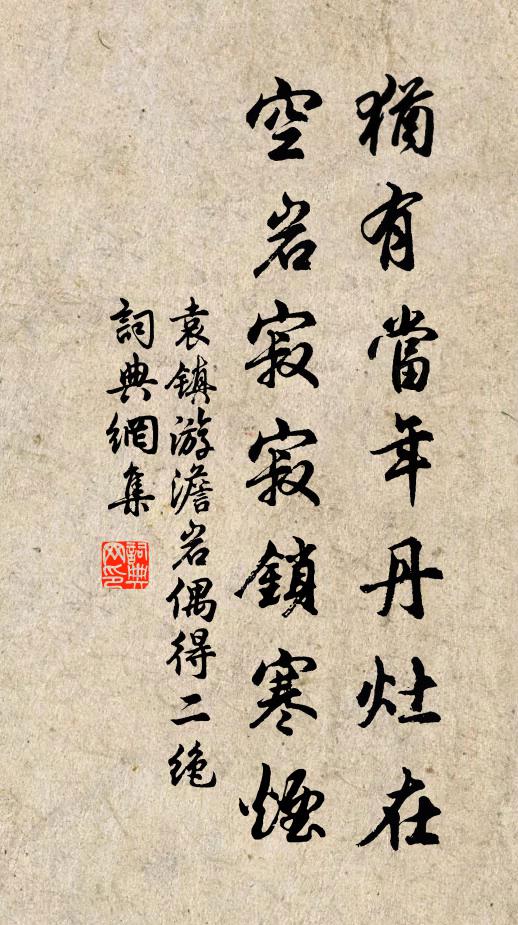 猶有當年丹灶在
空岩寂寂鎖寒煙
袁镇游澹岩偶得二绝
詞典網集
詞典
网印